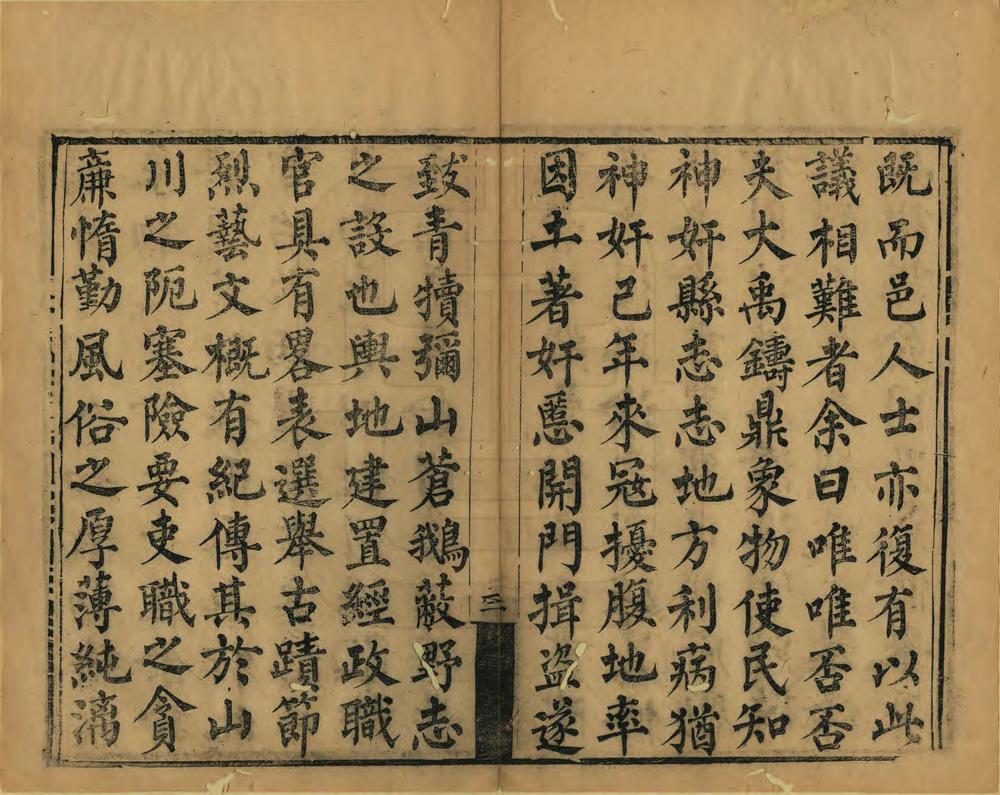 既而邑人士亦復有以此
議相難者余曰唯唯否否
夫大禹鑄鼎象物使民知
神奸縣志志地方利病猶
神奸已年來冦擾腹地率
因土著奸慝開門揖盜遂
三
致青犢彌山蒼鵝蔽野志
之設也輿地建置經政職
官具有畧表選舉古蹟節
烈藝文概有紀傳其於山
川之阨塞險要吏職之貪
亷惰勤風俗之厚薄純漓